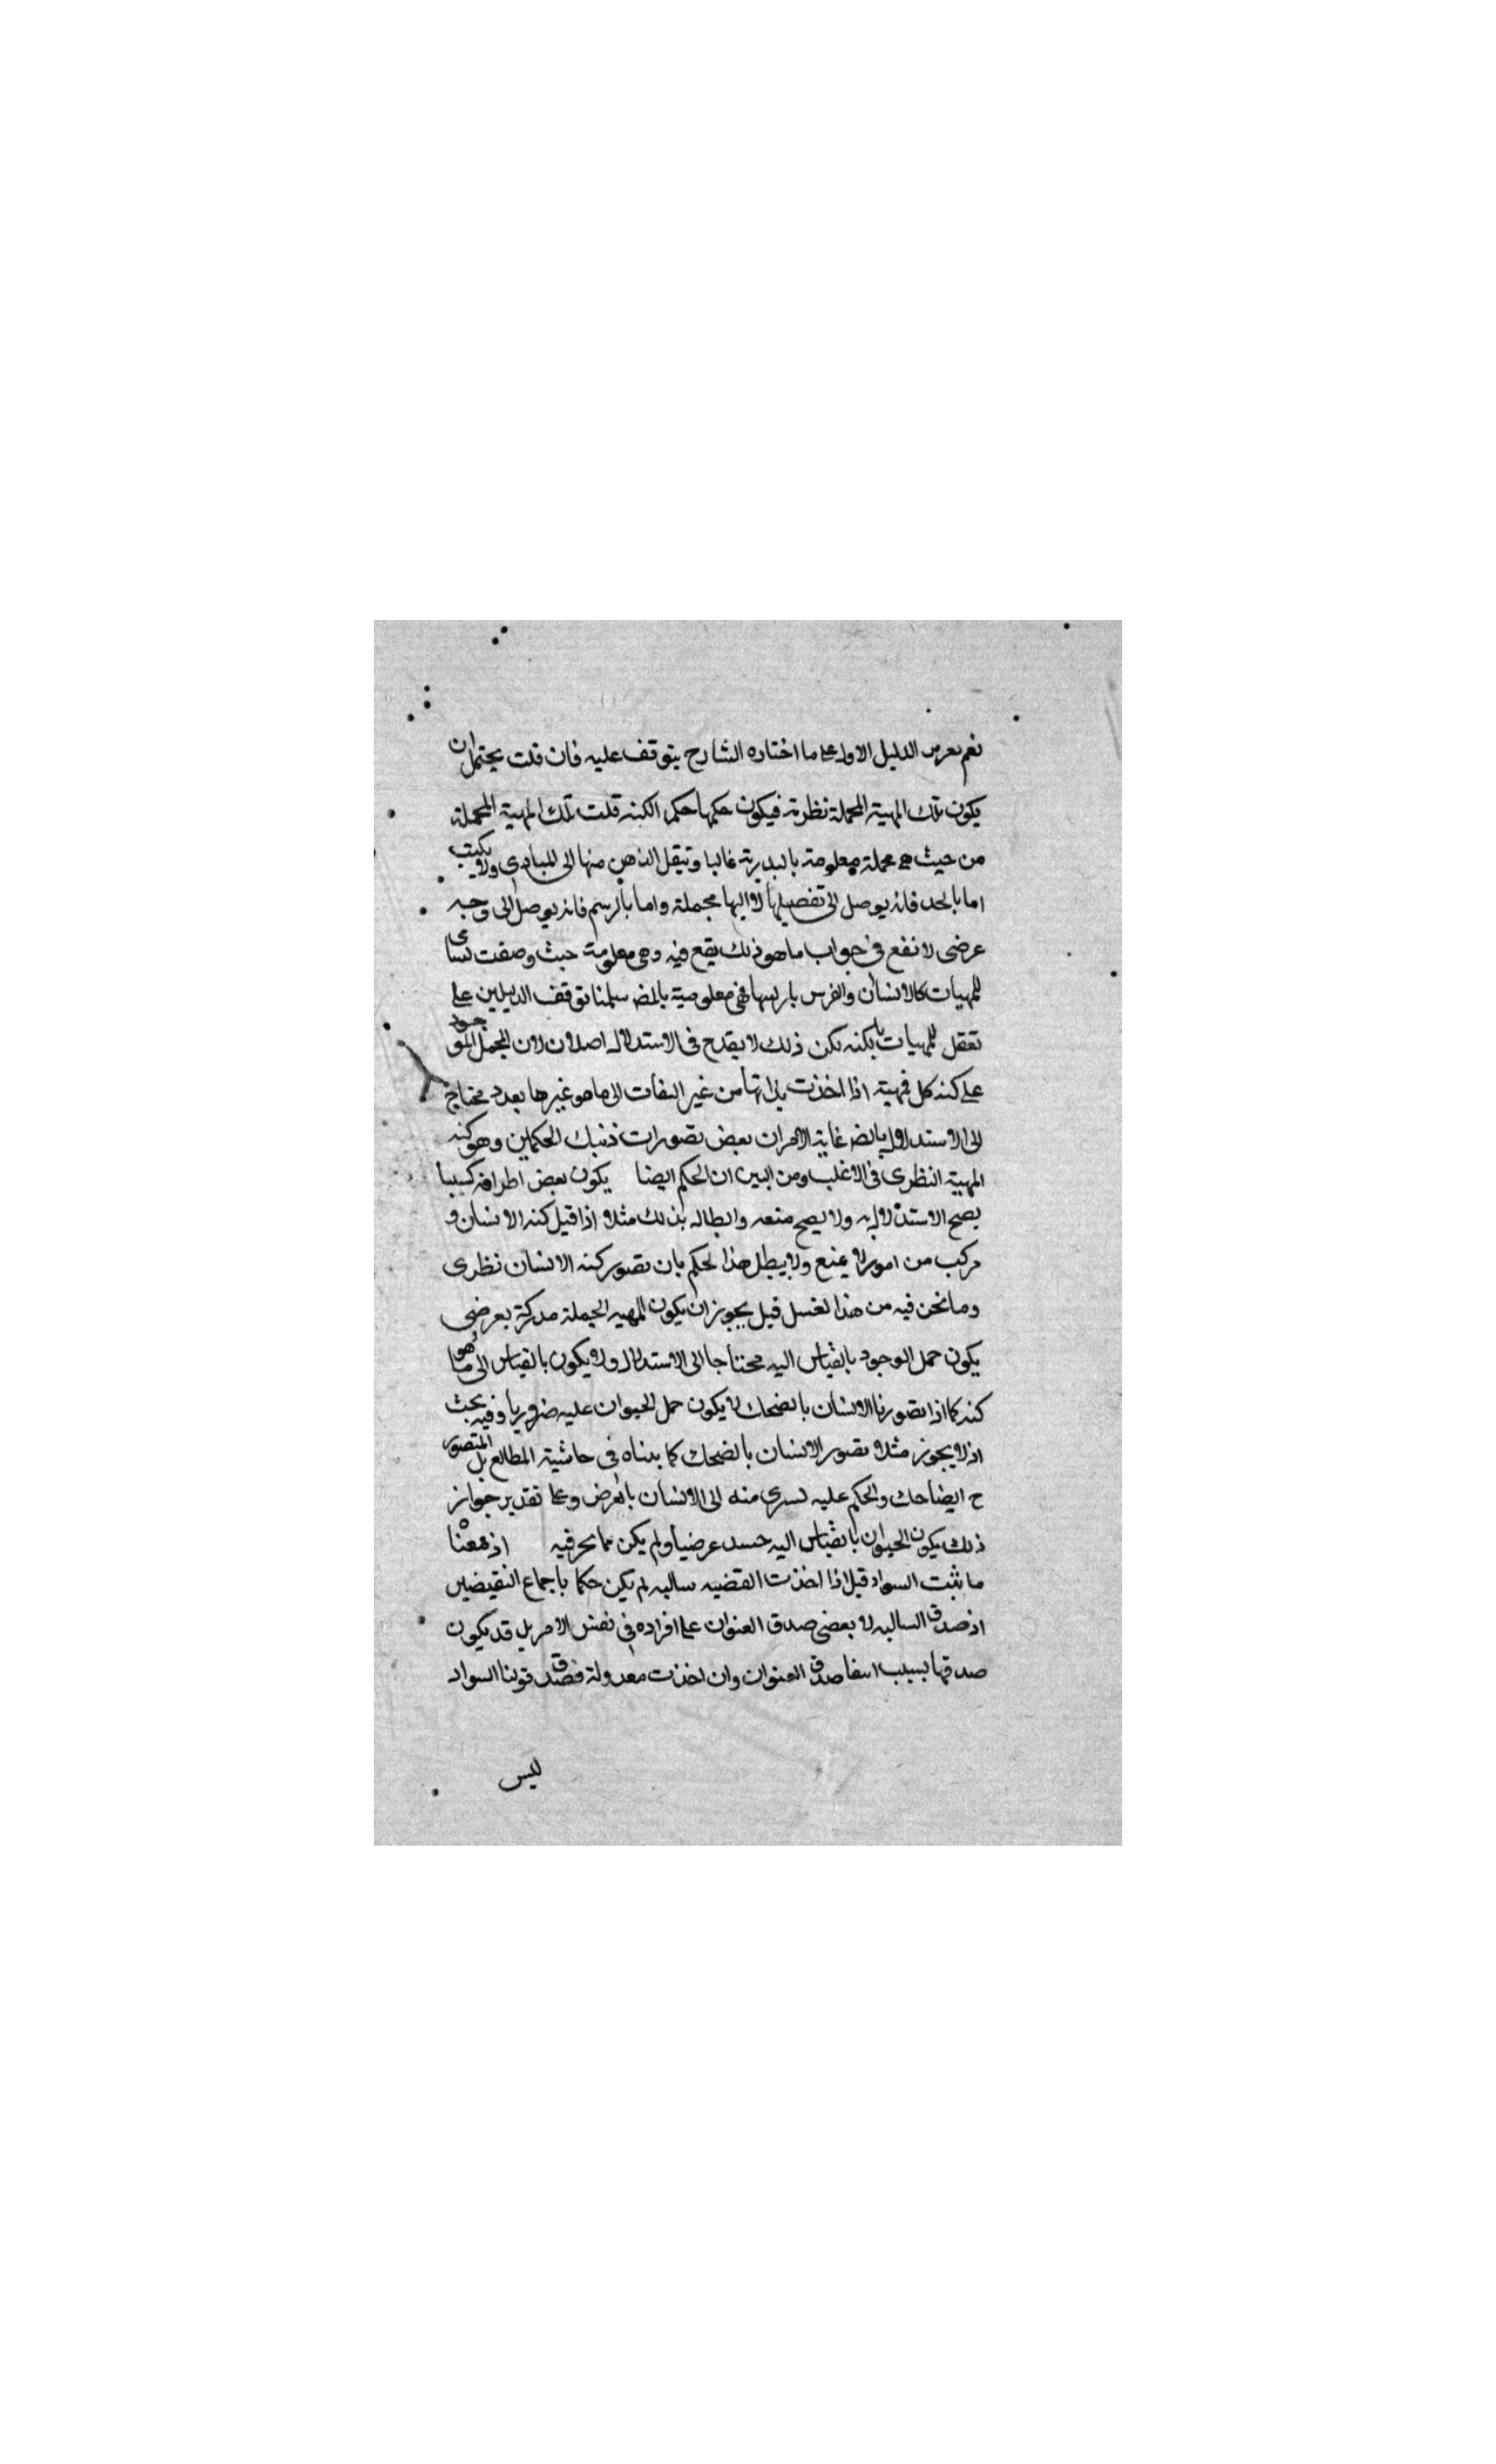 نعم بعرس الدليل الاول على ما اختاره الشارح يتوقف عليه فان قلت يحتمل ان
يكون تلك المهية المجملة نظرية فيكون حكمها حكم الكنه قلت تلك المهية المجملة
من حيث هى مجملة معلومة بالبديهة غالبا وينتقل الذهن منها الى المبادى ولا يكتسب
اما بالحد فانه يوصل الى تفصيلها لا اليها مجملة واما بالرسم فانه يوصل الى وجه
عرضى لا نفع فى جواب ما هو ذلك يقع فيه وهى معلومة حيث وصفت
للمهيات كالانسان والفرس باريها فهى معلومة سلمنا توقف الدليلين على
تعقل المهيات بالكنه لكن ذلك لا يقدح فى الاستدلال اصلا لان المجمل الموجود
على كنه كل مهية اذا اخذت بذاتها من غير التفات الى ما هو غيرها بعد محتاج
الى الاستدلال غاية الامر ان بعض تصورات ذينك الحكمين وهو كنه
المهية النظرى فى الاغلب ومن البين ان الحكم ايضا يكون بعض اطرافه كسبيا
يصح الاستدلال به ولا يصح منعه وابطاله بذلك مثلا اذا قيل كنه الانسان
مركب من امور لا يمنع ولا يبطل هذا الحكم بان تصور كنه الانسان نظرى
وما نحن فيه من هذا القبيل قيل يجوز ان يكون المهية المجملة مدركة بعرضى
يكون حمل الوجود بالقياس اليه محتاجا الى الاستدلال ولا يكون بالقياس الى ما هو
كنه كما اذا تصورنا الانسان بالضحك لا يكون حمل الحيوان عليه ضروريا وفيه بحث
اذ لا يجوز مثلا تصور الانسان بالضحك كما بيناه فى حاشية المطالع بل المتصور
ح ايضا ضاحك والحكم عليه يسرى منه الى الانسان بالعرض وعلى تقدير جواز
ذلك يكون الحيوان بالقياس اليه عرضيا ولم يكن مما نحن فيه اذ معناه
ما يثبت السواد قيل اذا اخذت القضيه سالبه لم يكن حكما باجماع النقيضين
اذ صدق السالبه لا يقتضى صدق العنوان على افراده فى نفس الامر بل قد يكون
صدقها بسبب انتفا صدق العنوان وان اخذت معدولة فصدق قولنا السواد
ليس